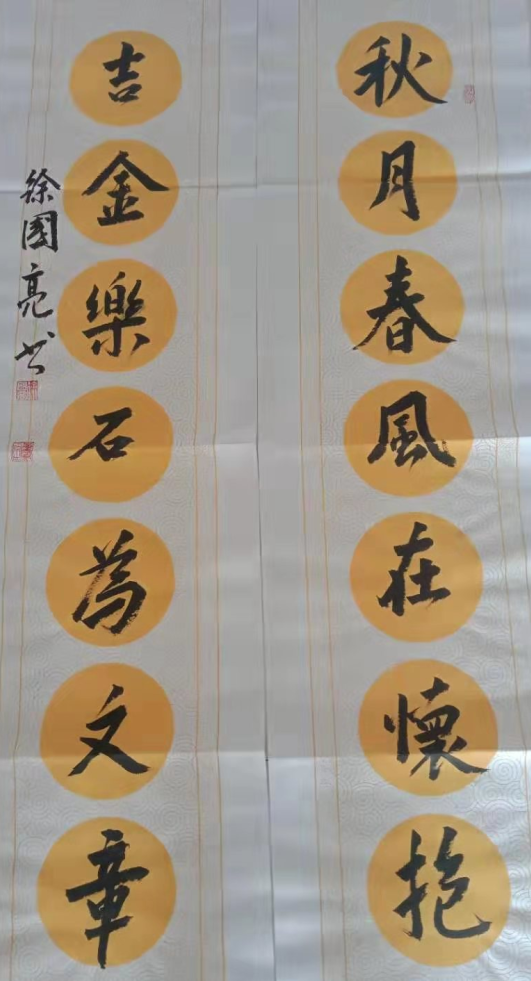 秋月春風在懷抱
吉金樂石為文章
徐國亮书